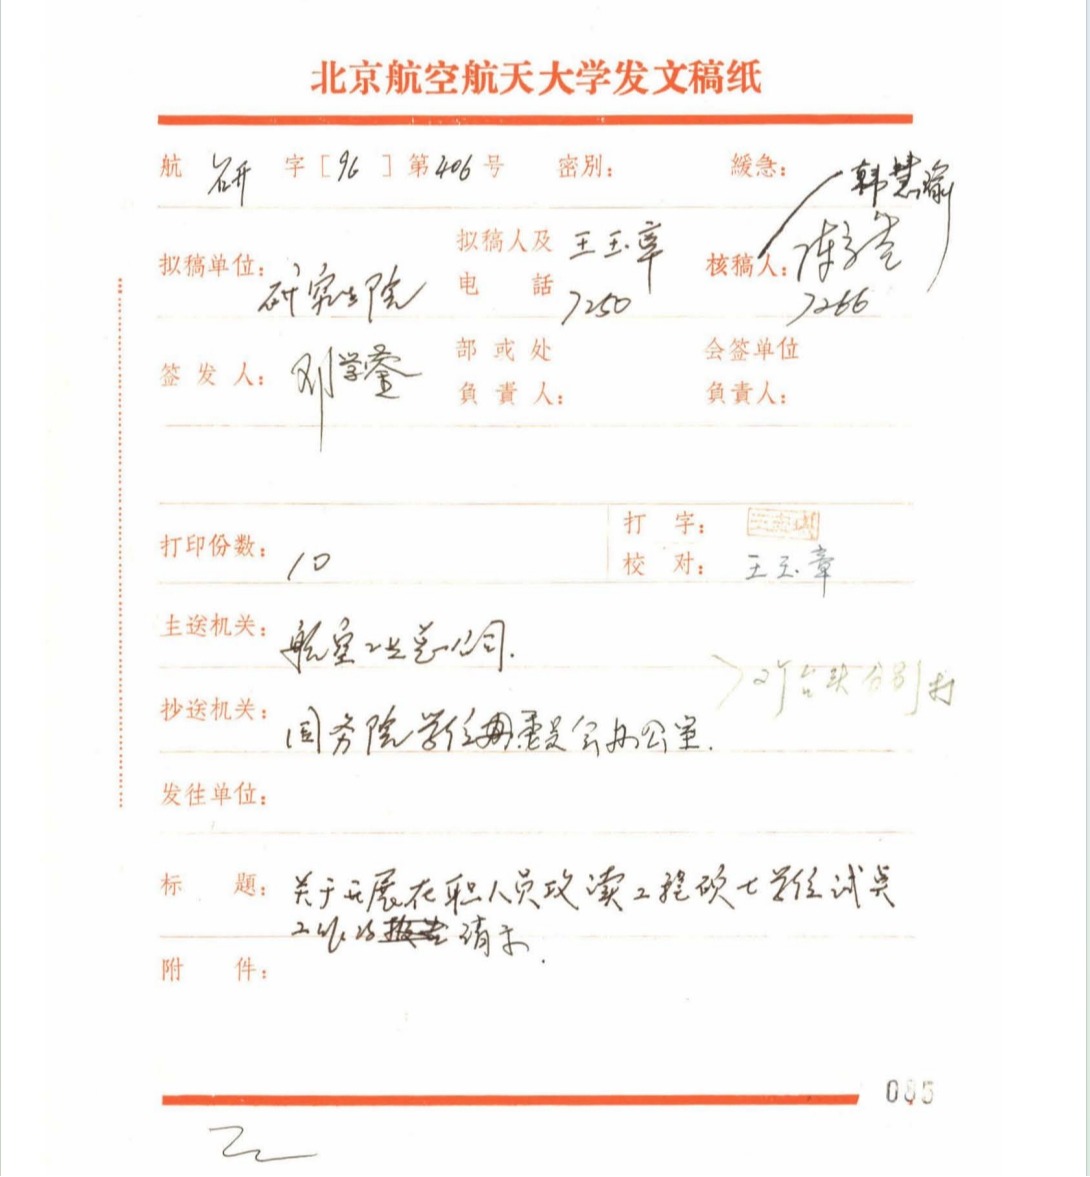 北京航空航天大学发文稿纸
航 研 字［96］第406号 密别： 緩急：
韩慧瑜
拟稿单位： 研究生院 拟稿人及电話 王玉章 7250 核稿人： 7266
签发人： 邓学蓥 部或处負責人： 会签单位負責人：
打印份数： 10 打字：
校对： 王玉章
主送机关： 航空工业总公司.
2个台头分别打
抄送机关： 国务院学位委员会办公室.
发往单位：
标題： 关于开展在职人员攻读工程硕士学位试点
工作的请示.
附件：
085